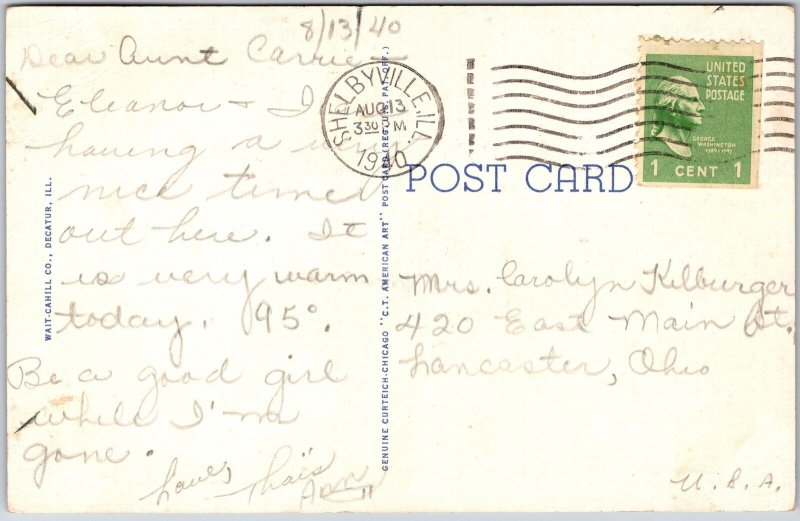 8/13/40
Dear Aunt Carrie —
Eleanor & I
having a very
nice time
out here. It
is very warm
today. 95°.
Be a good girl
while I'm
gone.
Love, Thaïs
Ann
WAIT-CAHILL CO., DECATUR, ILL.
GENUINE CURTEICH-CHICAGO "C.T. AMERICAN ART" POST CARD (REG. U.S. PAT. OFF.)
SHELBYVILLE, ILL.
AUG 13
3 30 PM
1940
UNITED
STATES
POSTAGE
GEORGE
WASHINGTON
1789-1797
1 CENT 1
POST CARD
Mrs. Carolyn Kilburger
420 East Main St.
Lancaster, Ohio
U.S.A.